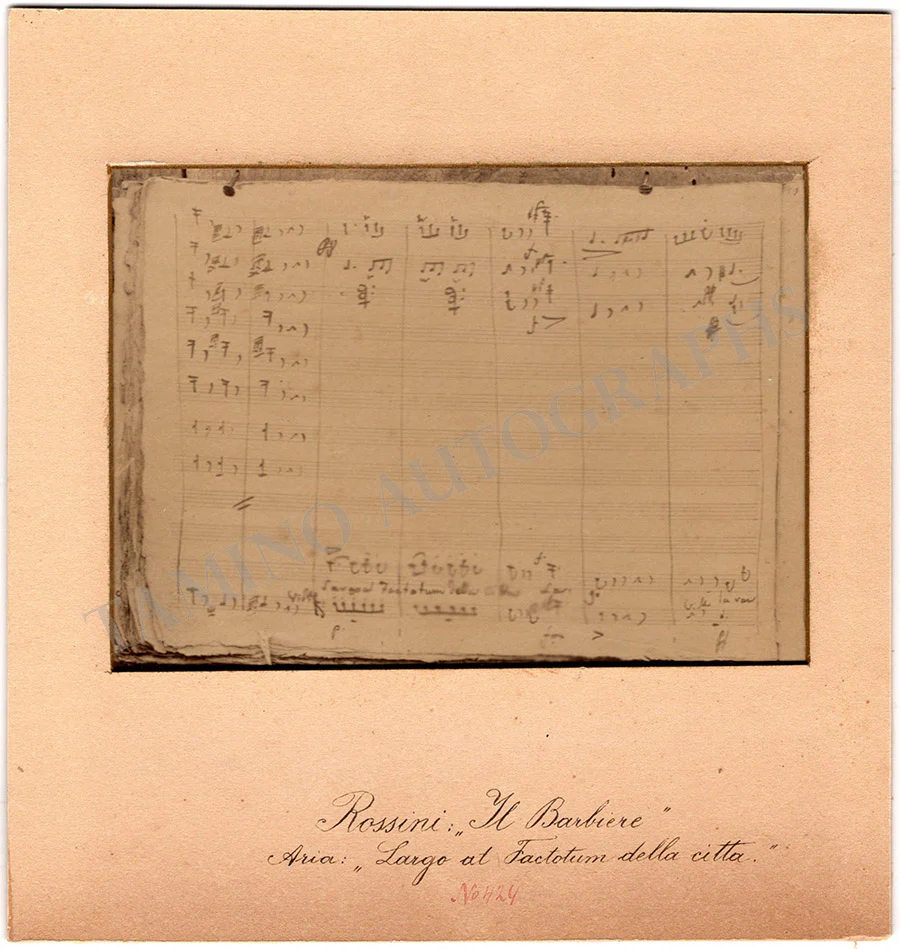 Largo al Factotum della citta
TAMINO AUTOGRAPHS
Rossini: „Il Barbiere"
Aria: „Largo al Factotum della citta."
No 424